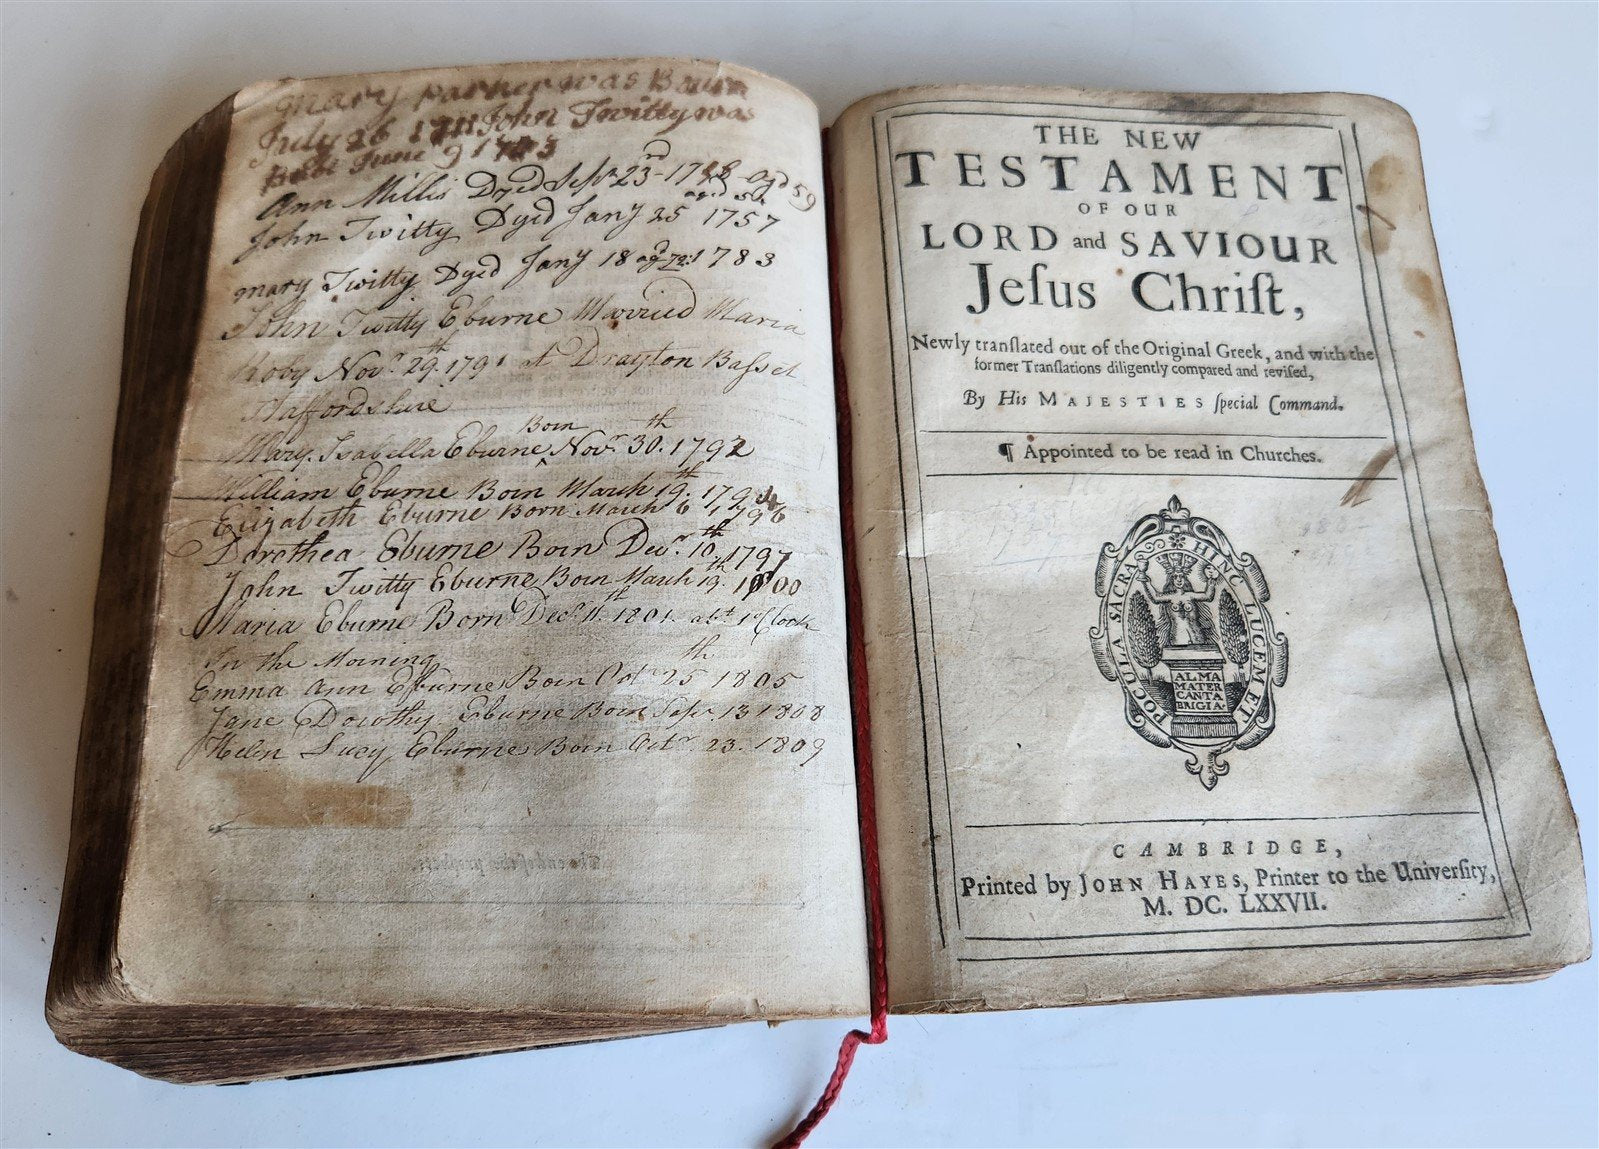 Mary Parker was Bourn
July 26 1711 John Twitty was
June 9
Ann Millis Dyed Sepr. 23rd 17 agd 59
John Twitty Dyed Jany 25 1757
mary Twitty Dyed Jany 18 agd 72 1783
John Twitty Eburne Married Maria
Roby Novr. 29th. 1791 at Drayton Basset
Staffordshire
Mary. Isabella Eburne Born Novr. 30th. 1792
William Eburne Born March 19th. 1794
Elizabeth Eburne Born March 6 1796
Dorothea Eburne Born Decr. 10th. 1797
John Twitty Eburne Born March 19th. 1800
Maria Eburne Born Decr. 11th. 1801. abt. 1 oClock
In the Morning
Emma Ann Eburne Born Octr 25th 1805
Jane Dorothy Eburne Born Sepr. 13 1808
Helen Lucy Eburne Born Octr. 23. 1809
THE NEW
TESTAMENT
OF OUR
LORD and SAVIOUR
Jeſus Chriſt,
Newly tranſlated out of the Original Greek, and with the
former Tranſlations diligently compared and reviſed,
By His MAJESTIES ſpecial Command.
¶ Appointed to be read in Churches.
HINC LUCEM ET POCULA SACRA
ALMA
MATER
CANTA
BRIGIA.
CAMBRIDGE,
Printed by JOHN HAYES, Printer to the Univerſity,
M. DC. LXXVII.